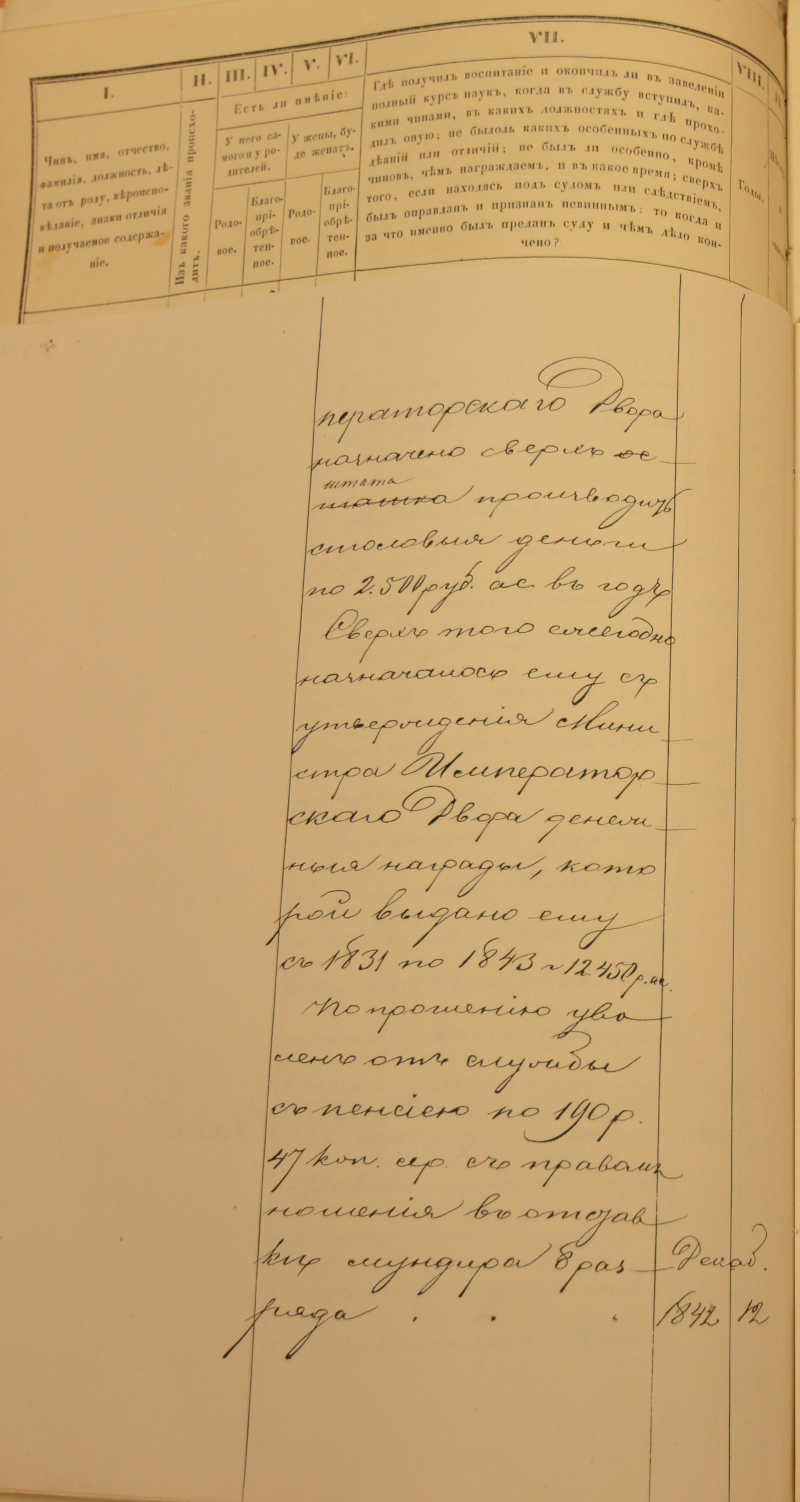 I.
II.
III.
IV.
V.
VI.
VII.
VIII.
Чинъ, имя, отчество,
фамилія, должность, лѣ-
та отъ роду, вѣроиспо-
вѣданіе, знаки отличія
и получаемое содержа-
ніе.
Изъ какого званія происхо-
дитъ.
Есть ли имѣніе:
У него са-
мого и у ро-
дителей.
У жены, бу-
де женатъ.
Родо-
вое.
Благо-
прі-
обрѣ-
тен-
ное.
Родо-
вое.
Благо-
прі-
обрѣ-
тен-
ное.
Гдѣ получилъ воспитаніе и окончилъ ли въ заведеніи
полный курсъ наукъ, когда въ службу вступилъ, ка-
кими чинами, въ какихъ должностяхъ и гдѣ прохо-
дилъ оную; не былоль какихъ особенныхъ по службѣ
дѣяній или отличій; не былъ ли особенно, кромѣ
чиновъ, чѣмъ награждаемъ, и въ какое время; сверхъ
того, если находясь подъ судомъ или слѣдствіемъ,
былъ оправданъ и признанъ невиннымъ: то когда и
за что именно былъ преданъ суду и чѣмъ дѣло кон-
чено?
Годы.
ператорскаго Двора
назначено сверхъ ое
штата
производить
столовыя деньги
по 2.500 руб. ас. въ годъ
Сверхъ того ежегодно
назначалось ему съ
утвержденія Мини
стра Император
скаго Двора денеж
ныя награды, кото
рой выдано ему
съ 1831 по 1843 ~ 12450 р. ас.
По прошенію уво
ленъ отъ службы
съ пенсіею по 190 р.
47 коп. сер. съ правомъ
ношенія въ отстав
кѣ мундира 8 раз
ряда . . .
Декаб.
1842
12